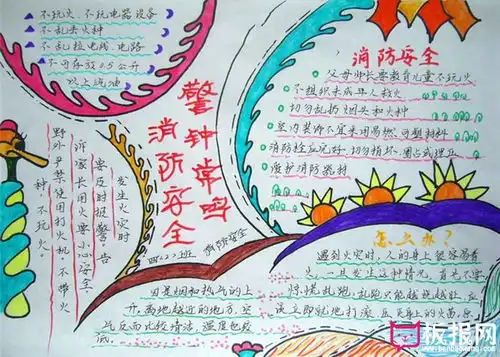 不玩火、不玩电器设备
不乱丢火种
不乱拉电线、电路
不可存放0.5公升
以上汽油
警钟常鸣
消防安全
消防安全
父母师长要教育儿童不玩火
不组织未成年人救火
切勿乱扔烟头和火种
室内装修不宜采用易燃、可塑材料
消防栓应完好，切勿损坏、圈占或埋压
爱护消防器材
发生火灾时
要及时报警告
诉家长用火要小心安全，
野外严禁使用打火机，不带火
种，不玩火
四（2）班
消防安全
因是烟和热气的上
升，离地越近的地方，空
气反而比较清洁，温度也较
低
怎么办？
遇到火灾时，人的身上很容易着
火，一旦发生这种情况，首先不要
惊慌乱跑，乱跑只能越烧越旺，应
该立即就地打滚，压灭身上的火焰，原
板报网